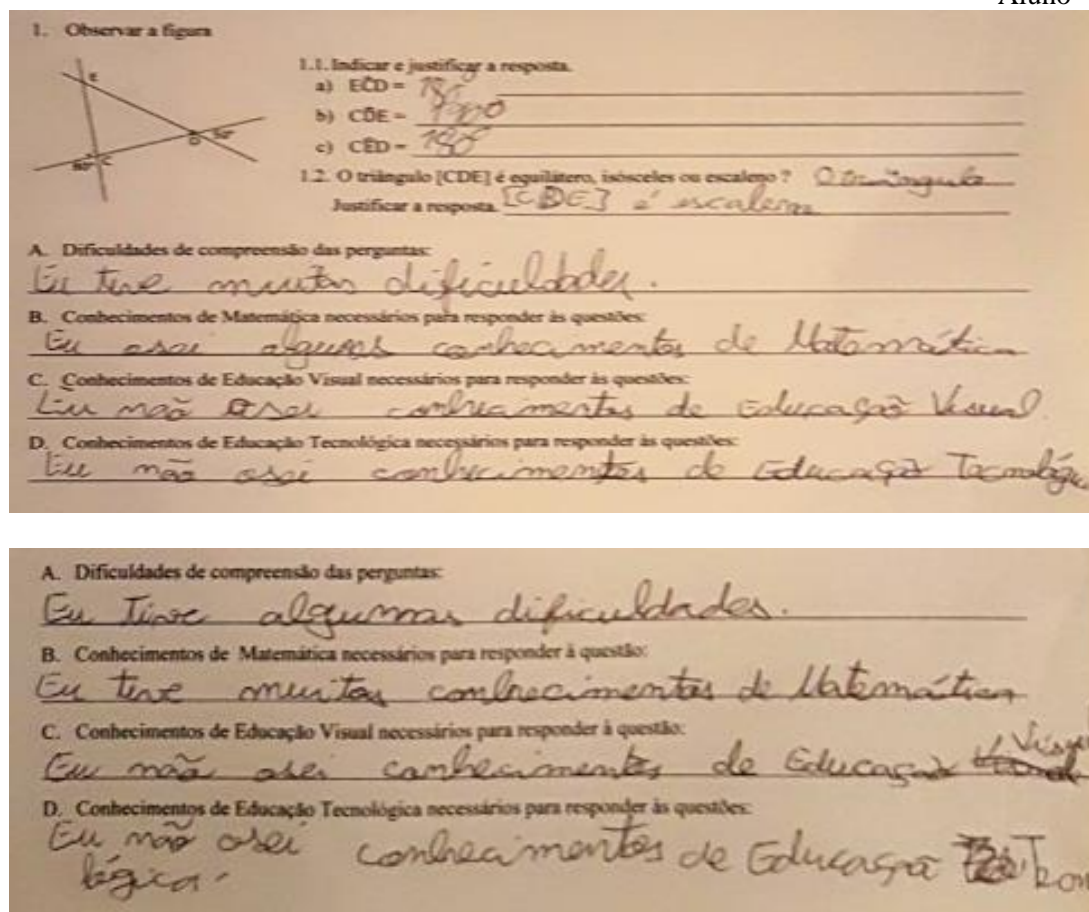 Aluno
1. Observar a figura
1.1. Indicar e justificar a resposta.
a) EĈD = 180
b) CD̂E =
c) CÊD = 180°
E
D
50°
80°
C
1.2. O triângulo [CDE] é equilátero, isósceles ou escaleno ? O triângulo
Justificar a resposta. [CDE] é escaleno
A. Dificuldades de compreensão das perguntas:
Eu tive muitas dificuldades.
B. Conhecimentos de Matemática necessários para responder às questões:
Eu osei algumas conhecimentos de Matemática
C. Conhecimentos de Educação Visual necessários para responder às questões:
Eu não osei conhecimentos de Educação Visual.
D. Conhecimentos de Educação Tecnológica necessários para responder às questões:
Eu não osei conhecimentos de Educação Tecnológic
A. Dificuldades de compreensão das perguntas:
Eu Tive algumas dificuldades.
B. Conhecimentos de Matemática necessários para responder à questão:
Eu tive muitos conhecimentos de Matemática
C. Conhecimentos de Educação Visual necessários para responder à questão:
Eu não osei conhecimentos de Educação
D. Conhecimentos de Educação Tecnológica necessários para responder às questões:
Eu não osei conhecimentos de Educação
lógica.